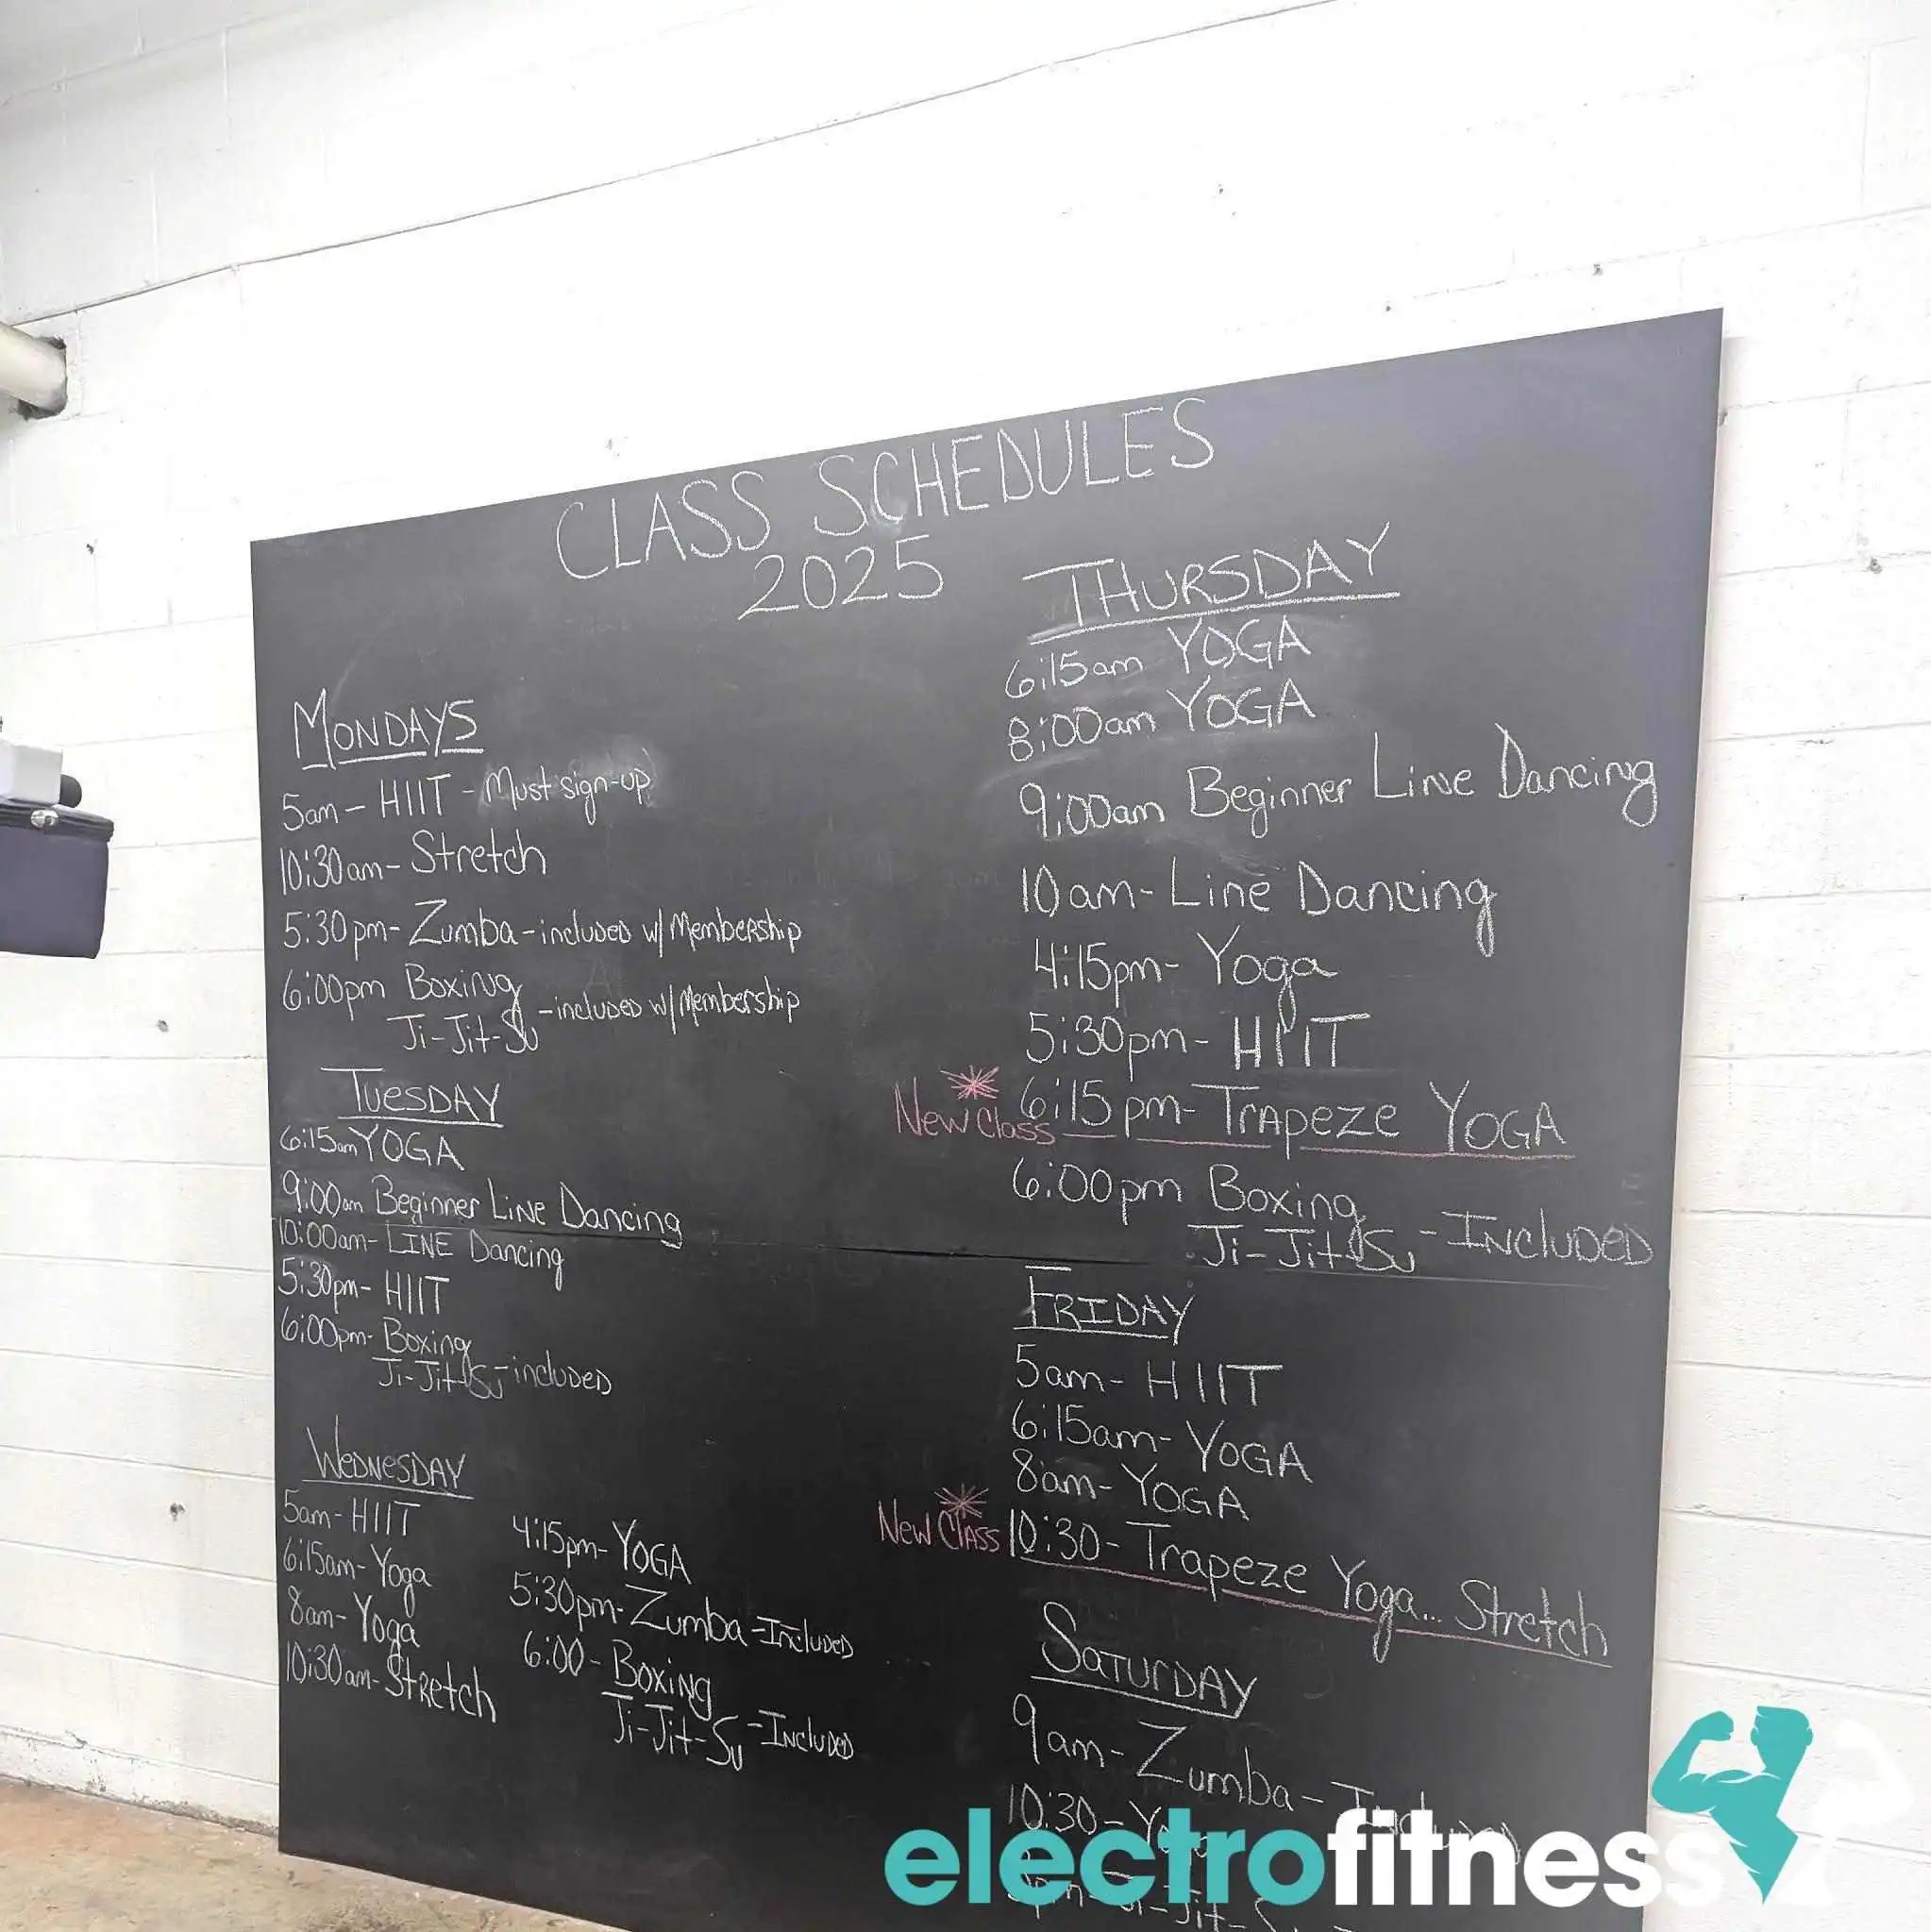 CLASS SCHEDULES
2025
MONDAYS
5am - HIIT - Must sign-up
10:30am - Stretch
5:30pm - Zumba - included w/ Membership
6:00pm Boxing
Ji-Jit-Su - included w/ Membership
TUESDAY
6:15am YOGA
9:00am Beginner Line Dancing
10:00am - LINE Dancing
5:30pm - HIIT
6:00pm - Boxing
Ji-Jit-Su - included
WEDNESDAY
5am - HIIT
6:15am - Yoga
8am - Yoga
10:30am - Stretch
4:15pm - YOGA
5:30pm - Zumba - Included
6:00 - Boxing
Ji-Jit-Su - Included
THURSDAY
6:15am YOGA
8:00am YOGA
9:00am Beginner Line Dancing
10am - Line Dancing
4:15pm - Yoga
5:30pm - HIIT
New Class 6:15pm - Trapeze YOGA
6:00pm Boxing
Ji-Jit-Su - Included
FRIDAY
5am - HIIT
6:15am - YOGA
8am - YOGA
New Class 10:30 - Trapeze Yoga... Stretch
SATURDAY
9am - Zumba - Included
10:30 -
electrofitness